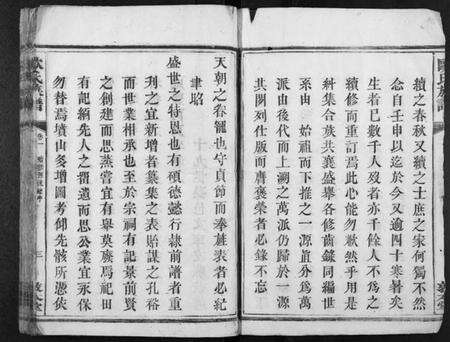 續之春秋又續之士庶之家何獨不然
念自壬申以迄於今又逾四十寒暑矣
生者已數千人歿者亦千餘人不爲之
續修而重訂焉此心能勿歉然乎用是
糾集合族共襄盛舉各修齒錄同編世
系由 始祖而下推之一源直分爲萬
派由後代而上溯之萬派仍歸於一源
其閥列仕版而膺褒榮者必錄不忘
天朝之眷寵也守貞節而奉旌表者必紀
聿昭
盛世之特恩也有碩德懿行隸前譜者重
刋之宜新增者纂集之表貽謀之孔裕
而世業相承也至於宗祠有記景前賢
之創建而思蒸嘗宜有舉莫廢焉祀田
有記緬先人之遺而思公業宜永保
勿替焉墳山多增圖考仰先骸所憑俠
歐氏族譜
卷一
三